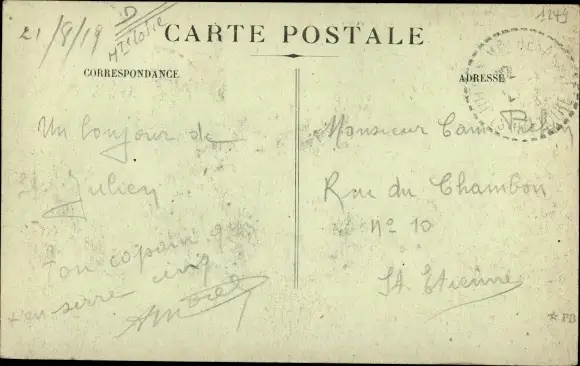 21/8/19
1249
CARTE POSTALE
CORRESPONDANCE
ADRESSE
Un bonjour de
St Julien
Ton copain qui
t'en serre cinq
Monsieur
Rue du Chambon
n° 10
St Etienne
PB